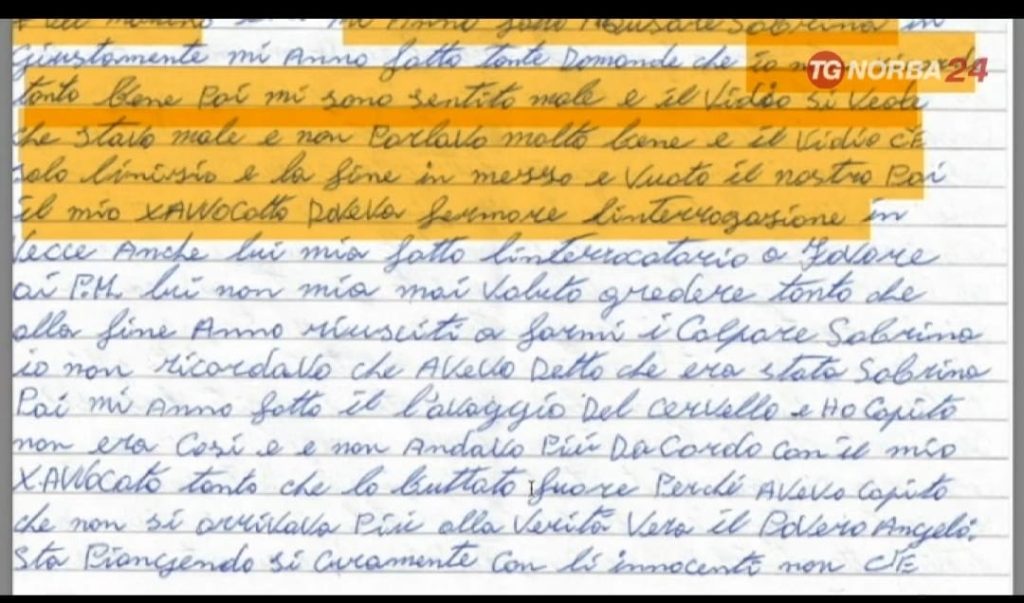 mi Anno fatto Accusare Sabrina in
Giustamente mi Anno fatto tante Domande che io
TG NORBA 24
tanto bene Poi mi sono sentito male e il Vidio Si Vede
che stavo male e non Parlavo molto bene e il Vidio c'E
solo linisio e la fine in messo e Vuoto il nostro Poi
il mio XAVVOCatto DoveVa fermare linterrogasione in
Vecce Anche lui mia fatto linterrocatorio a favore
ai P.M. lui non mia mai Voluto gredere tanto che
alla fine Anno riusciti a farmi i Colpare Sabrina
io non ricordavo che AVevo Detto che era stata Sabrina
Poi mi Anno fatto il l'avaggio Del cervello e Ho Capito
non era Cosi e e non Andavo Più DaCordo con il mio
XAVVOCato tanto che lo buttato fuore Perché AVeVo Capito
che non si arrivava Più alla Verità Vera il Povero Angelo.
Sta Piangendo si curamente Con li innocenti non c'E